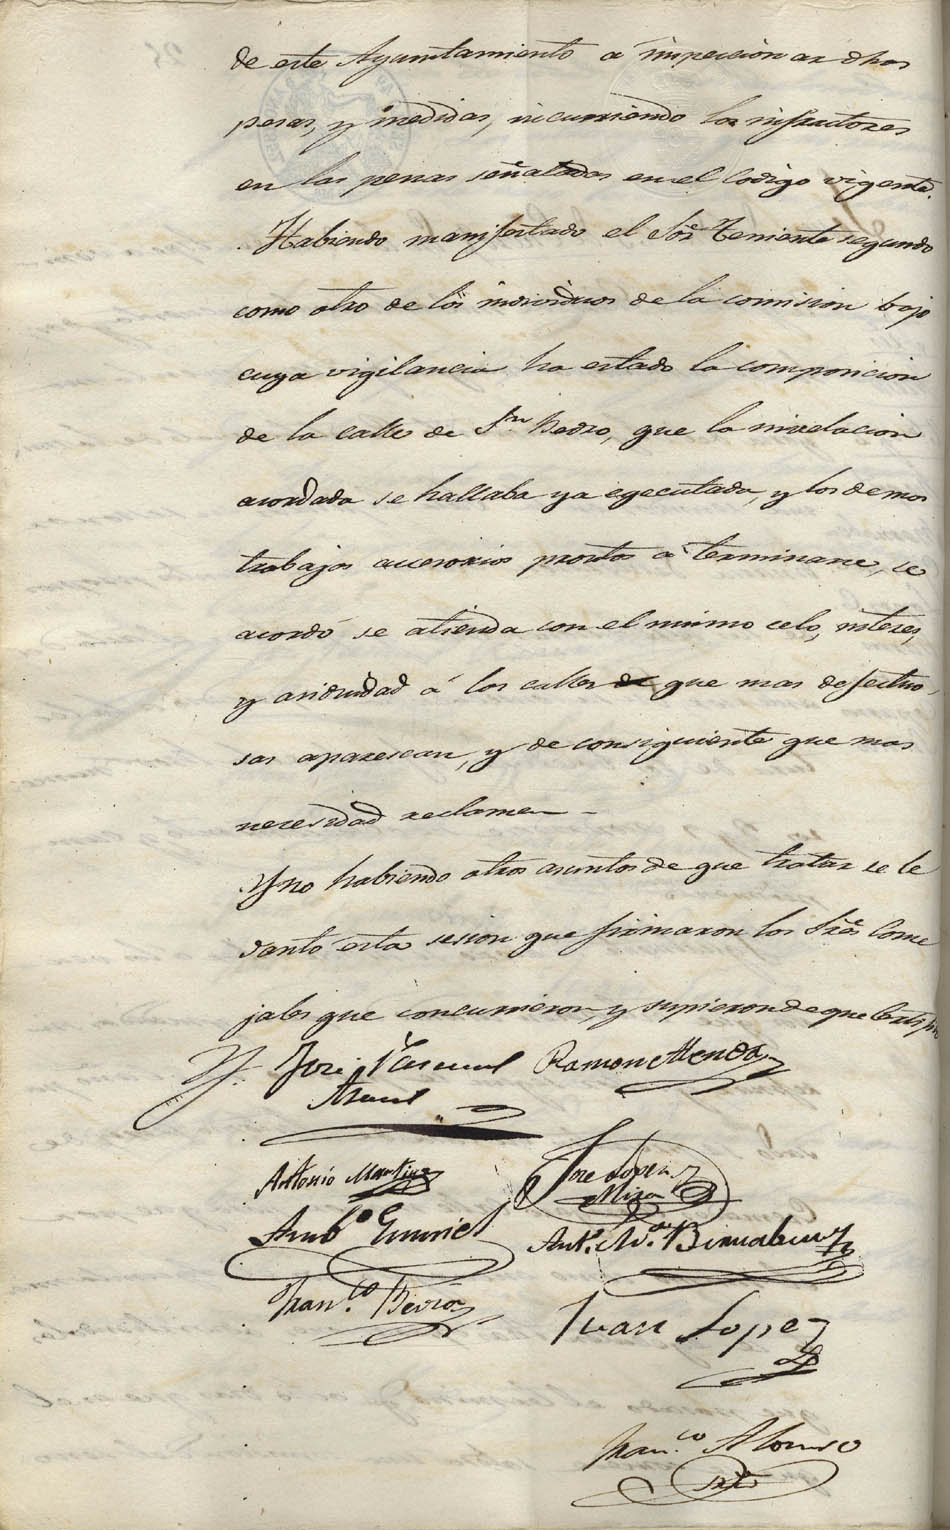 de este Ayuntamiento a inspeccionar dhas
pesas, y medidas, incurriendo los infractores
en las penas señaladas en el Codigo vigente.
Habiendo manifestado el Sor. Teniente segundo
como otro de los individuos de la comision bajo
cuya vigilancia ha estado la composicion
de la calle de Sn. Pedro, que la nivelacion
acordada se hallaba ya egecutada, y los demas
trabajos accesorios prontos a terminarse, se
acordó se atienda con el mismo celo, interes,
y asiduidad á las calles que mas defectuo-
sas aparescan, y de consiguiente que mas
necesidad reclamen
Y no habiendo otros asuntos de que tratar se le
vantó esta sesion que firmaron los Sres. Conce
jales que concurrieron, y supieron de que Certifico
José Pascual Ramon Mendoza
Antonio Martinez José Lopez
Mira
Ambo. Gumiel Anto. Ma.
Franco. Juan Lopez
Franco. Alonso
Srio